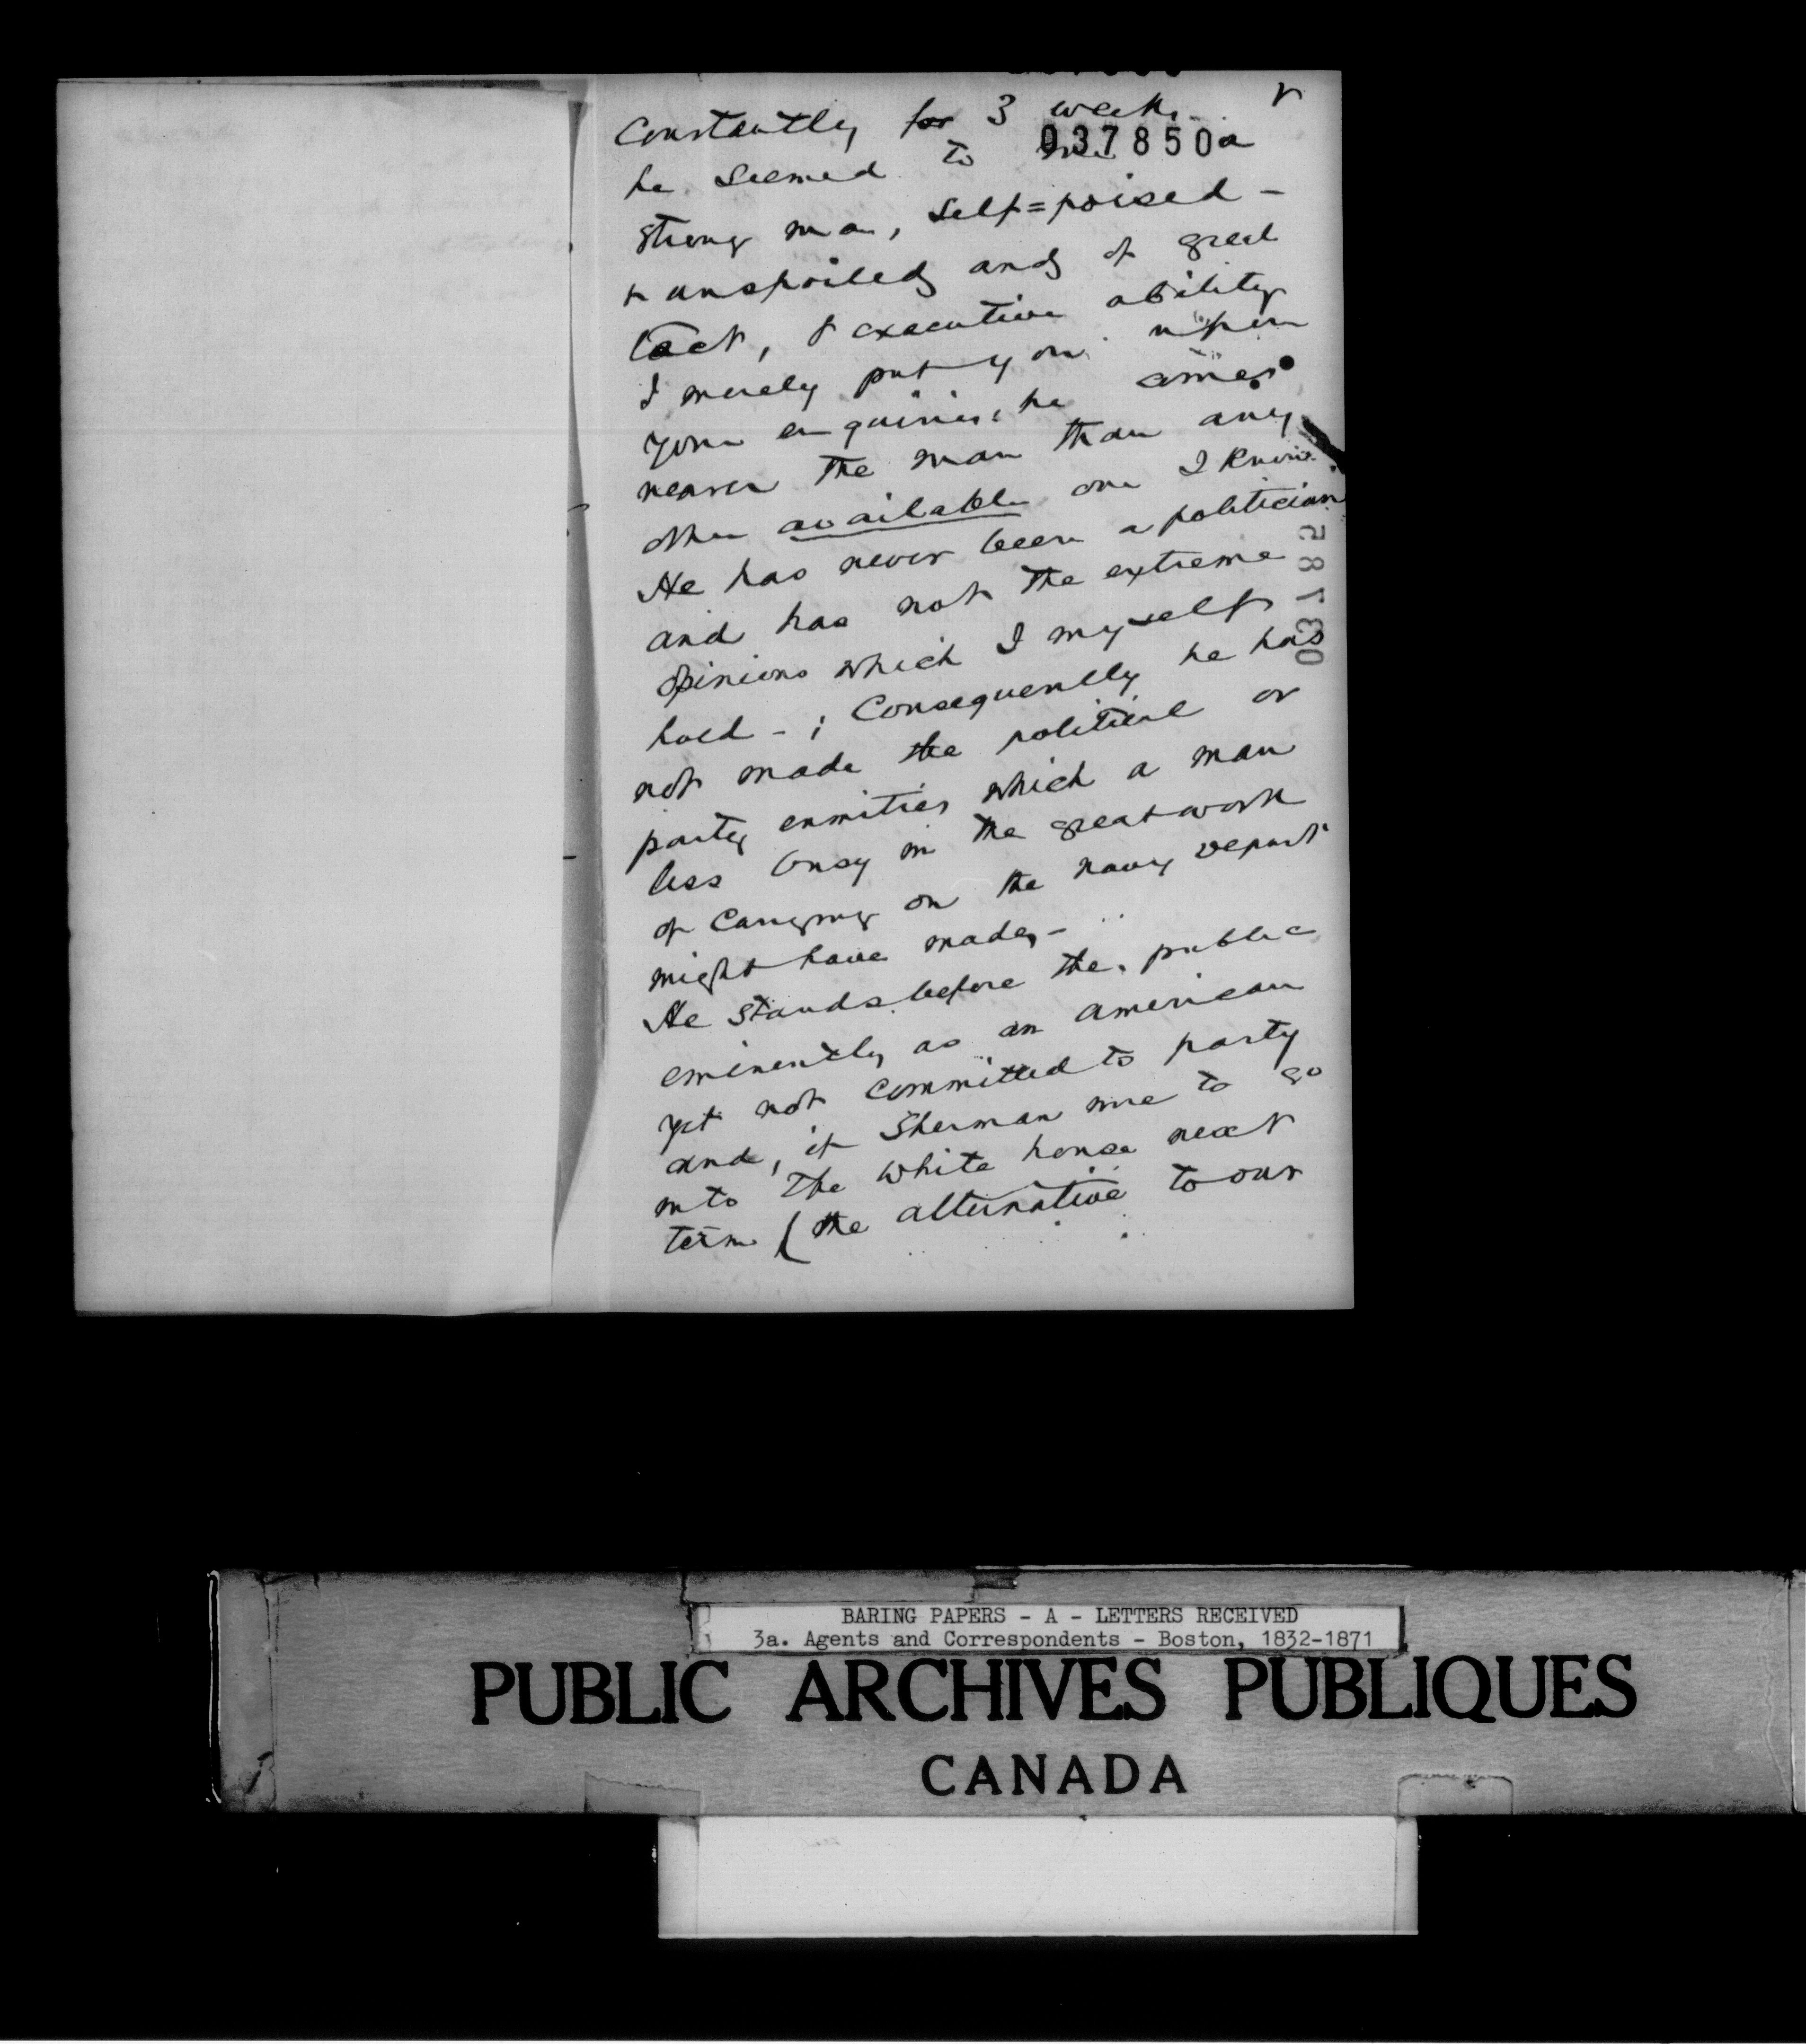 Constantly for 3 weeks
037850a
he seemed to me a
strong man, self=poised -
& unspoiled and of great
tact, & executive ability
I merely put you upon
your enquiries, he comes
nearer the man than any
other available one I know.
He has never been a politician
and has not the extreme
opinions which I myself
hold - ; Consequently he has
not made the political or
party enmities which a man
less busy in the great work
of Carrying on the navy depart
might have made, -
He stands before the public
eminently as an american
yet not committed to party
and, if Sherman were to go
into the white house next
term ( the alternative to our
03785
BARING PAPERS - A - LETTERS RECEIVED
3a. Agents and Correspondents - Boston, 1832-1871
PUBLIC ARCHIVES PUBLIQUES
CANADA